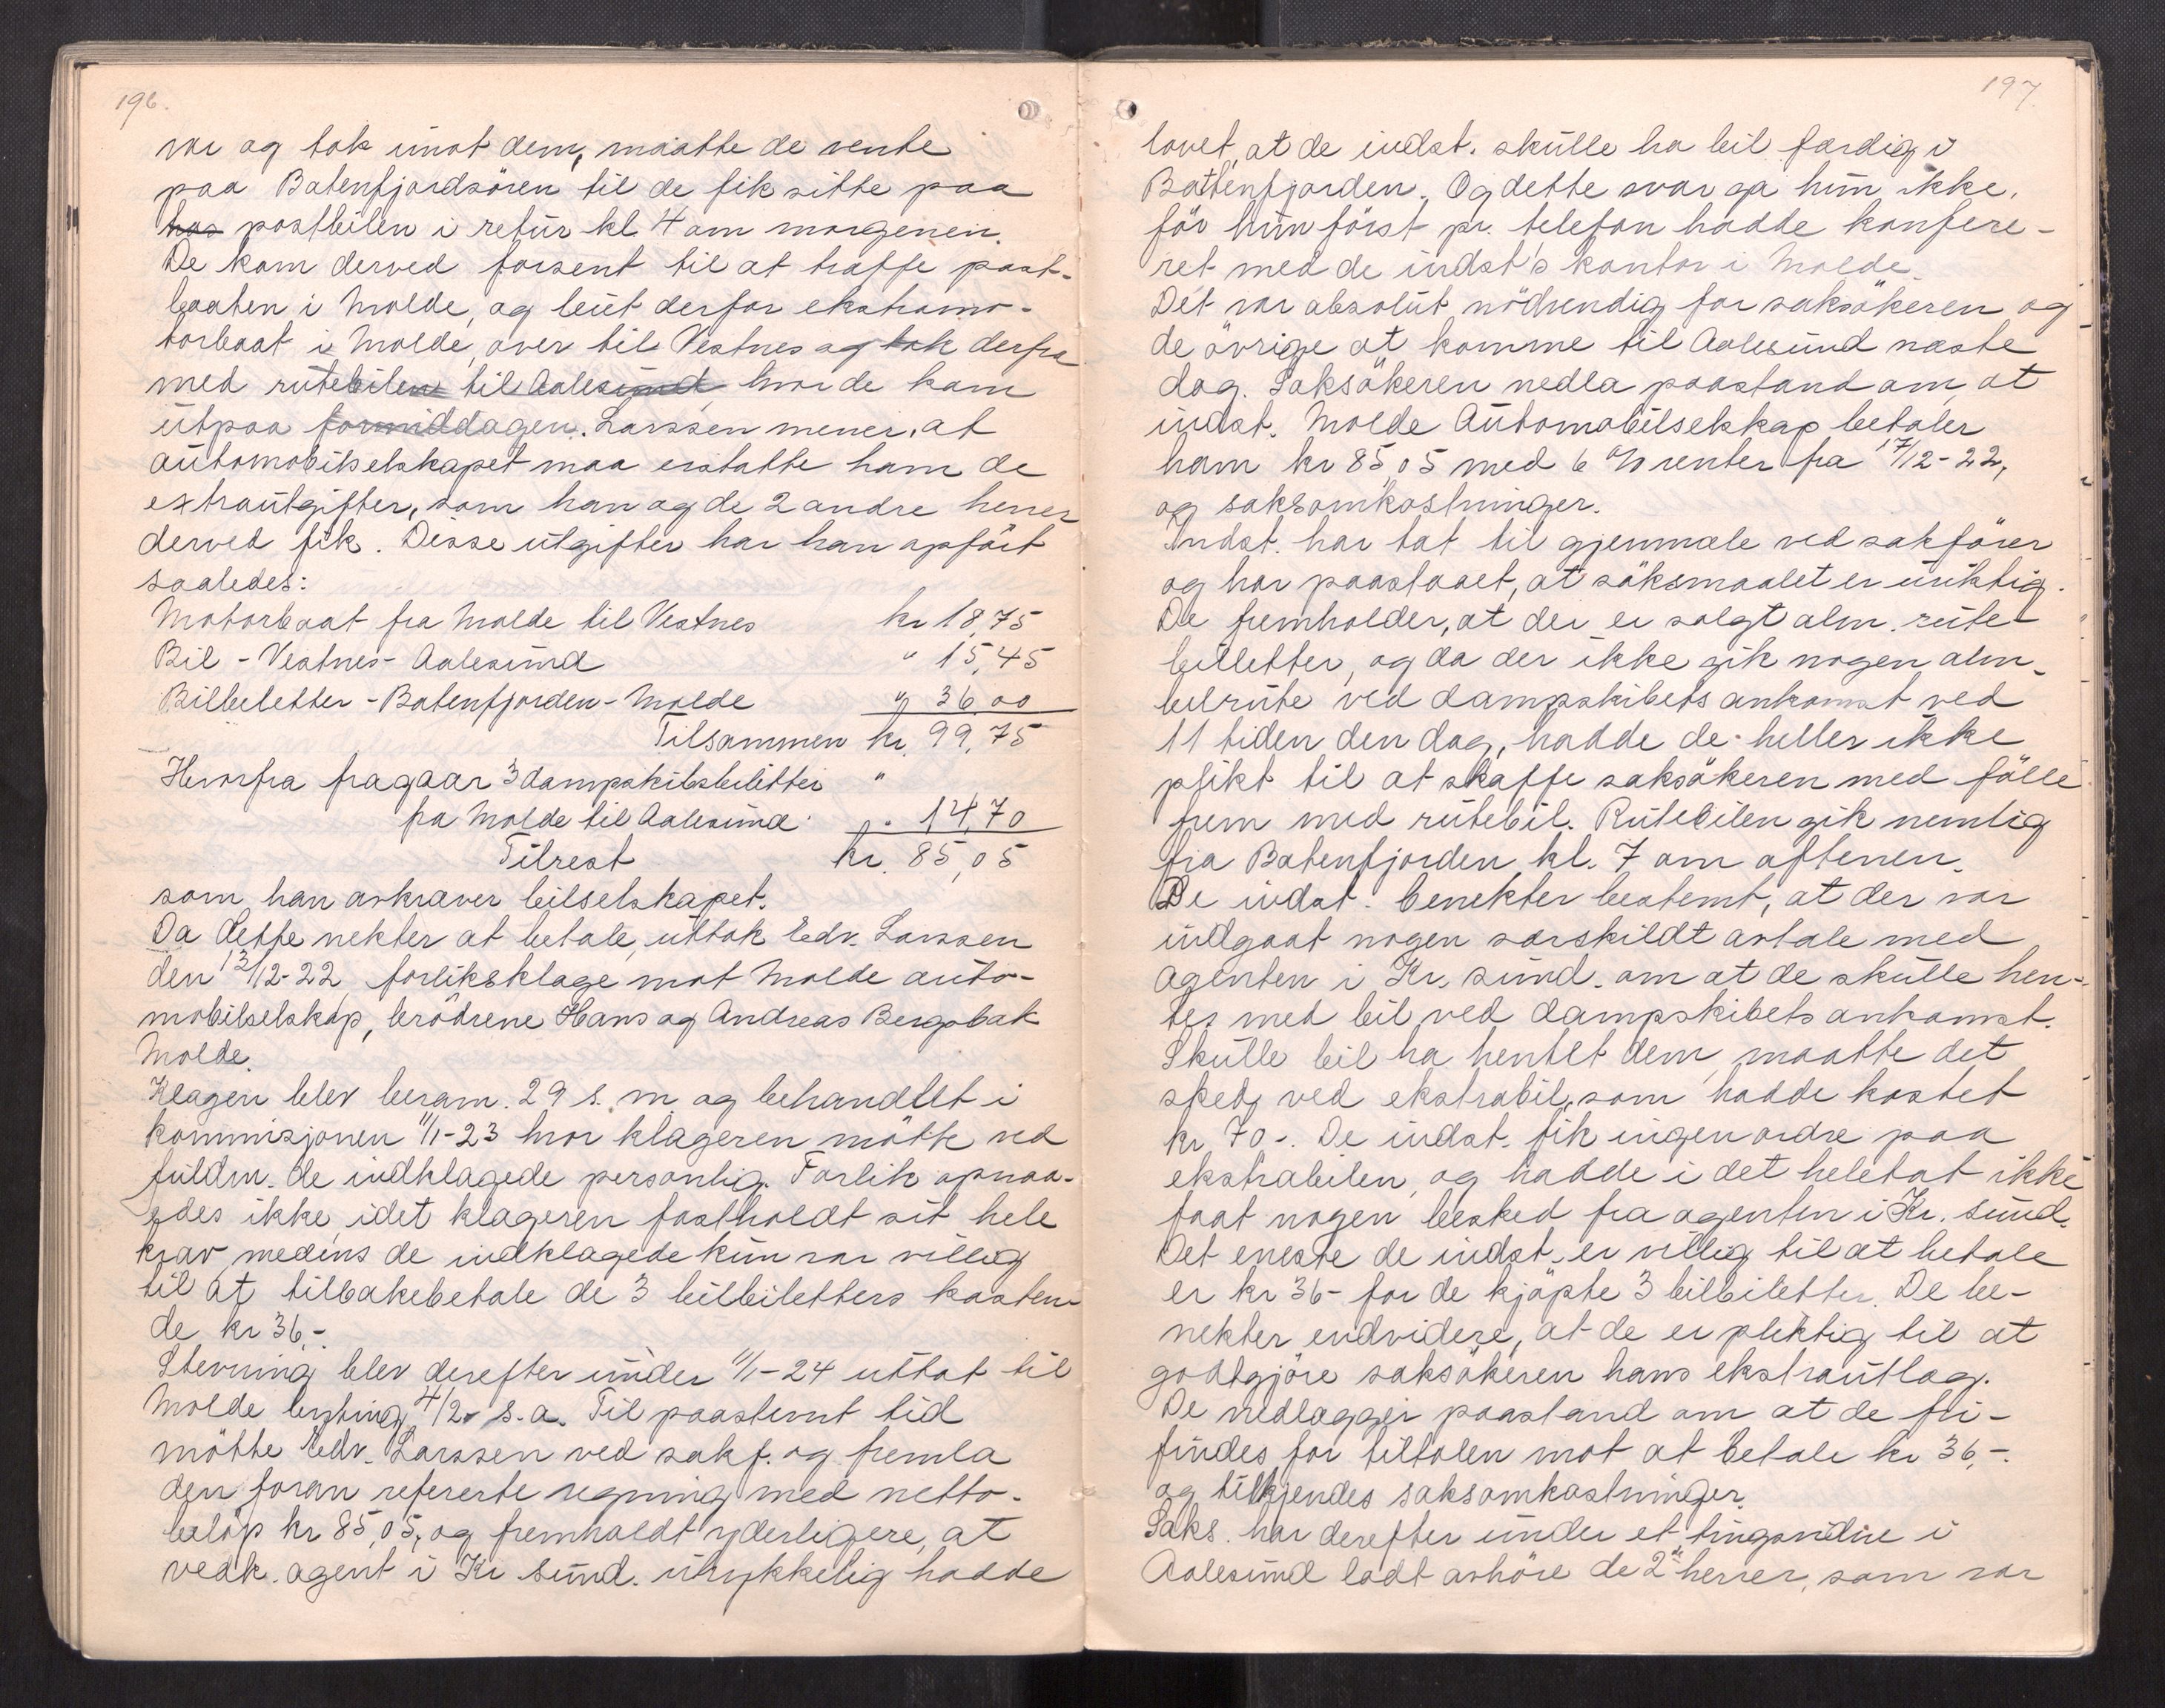 196.
var og tok imot dem, maatte de vente
paa Batenfjordsören til de fik sitte paa
hos postbilen i retur kl 4 om morgenen.
De kom derved forsent til at træffe post-
baaten i Molde, og leiet derfor ekstramo-
torbaat i Molde, over til Vestnes og tok derfra
med rutebilen til Aalesund, hvor de kom
utpaa formiddagen. Larssen mener, at
automobilselskapet maa erstatte ham de
extrautgifter, som han og de 2 andre herrer
derved fik. Disse utgifter har han opfört
saaledes:
Motorbaat fra Molde til Vestnes kr 18,75
Bil - Vestnes - Aalesund " 15,45
Bilbiletter - Batenfjorden - Molde " 36,00
Tilsammen kr. 99,75
Hvorfra fragaar 3 dampskibsbiletter "
fra Molde til Aalesund " 14,70
Tilrest kr. 85,05
som han avkræver bilselskapet.
Da dette nekter at betale, uttok Edv. Larssen
den 13/12-22 forliksklage mot Molde auto-
mobilselskap, brödrene Hans og Andreas Bergsbak
Molde.
Klagen blev beram. 29 s. m. og behandlet i
kommisjonen 11/1-23 hvor klageren mötte ved
fuldm. de indklagede personlig. Forlik opnaa-
edes ikke, idet klageren fastholdt sit hele
krav, medens de indklagede kun var villig
til at tilbakebetale de 3 bilbiletters kosten-
de kr 36,-
Stevning blev derefter under 11/1-24 uttat til
Molde byting 4/2 s. a. Til paastemt tid
mötte Edv. Larssen ved sakf. og fremla
den foran refererte regning med netto-
belöp kr 85,05, og fremholdt yderligere, at
vedk. agent i Kr. sund. utrykkelig hadde
197
lovet, at de indst. skulle ha bil færdig i
Battenfjorden. Og dette svar ga hun ikke,
för hun först pr. telefon hadde konfere-
ret med de indst's kontor i Molde.
Det var absolut nödvendig for saksökeren og
de övrige at komme til Aalesund næste
dag. Saksökeren nedla paastand om, at
indst. Molde Automobilselskap betaler
ham kr 85,05 med 6 % renter fra 17/12-22,
og saksomkostninger.
Indst. har tat til gjenmæle ved sakförer
og har paastaaet, at söksmaalet er uriktig.
De fremholder, at der er solgt alm. rute-
billetter, og da der ikke gik nogen alm.
bilrute ved dampskibets ankomst ved
11 tiden den dag, hadde de heller ikke
plikt til at skaffe saksökeren med fölle
frem med rutebil. Rutebilen gik nemlig
fra Batenfjorden kl. 7 om aftenen.
De indst. benekter bestemt, at der var
indgaat nogen særskildt avtale med
agenten i Kr. sund. om at de skulle hen-
tes med bil ved dampskibets ankomst.
Skulle bil ha hentet dem, maatte det
sked ved ekstrabil, som hadde kostet
kr 70-. De indst. fik ingen ordre paa
ekstrabilen, og hadde i det heletat ikke
faat nogen besked fra agenten i Kr. sund.
Det eneste de indst. er villig til at betale
er kr 36- for de kjöpte 3 bilbiletter. De be-
nekter endvidere, at de er pliktig til at
godtgjöre saksökeren hans ekstrautlæg.
De nedlægger paastand om at de fri-
findes for tiltalen mot at betale kr 36,-.
og tilkjendes saksomkostninger.
Saks. har derefter under et tingsvidne i
Aalesund ladt avhöre de 2de herrer, som var